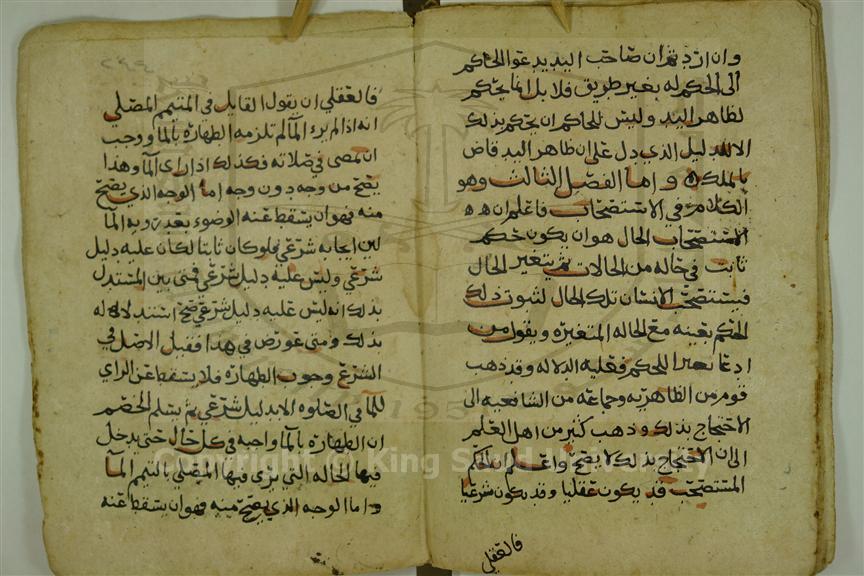 وان اردتم ان صاحب اليد يدعوا الحاكم
الى الحكم له بغير طريق فلا بل انما يحكم
لظاهر اليد وليس للحاكم ان يحكم بذلك
الا لدليل الذي دل على ان ظاهر اليد قاض
بالملك واما الفصل الثالث وهو
الكلام في الاستصحاب فاعلم ان
استصحاب الحال هو ان يكون حكم
ثابت في حاله من الحالات ثم يتغير الحال
فيستصحب الانسان تلك الحال لثبوت ذلك
الحكم بعينه مع الحاله المتغيره ويقول من
ادعا تغيرا للحكم فعليه الدلاله وقد ذهب
قوم من الظاهريه وجماعه من الشافعيه الى
الاحتجاج بذلك وذهب كثير من اهل العلم
الى ان الاحتجاج بذلك لا يصح واعلم ان الحكم
المستصحب قد يكون عقليا وقد يكون شرعيا
فالعقلي
فالعقلي ان يقول القايل في المتيمم المصلي
انه اذا لم ير الماء لم تلزمه الطهاره بالما ووجب
ان يمضى في صلاته فكذلك اذا راى الما وهذا
يصح من وجه دون وجه اما الوجه الذي يصح
منه فهو ان يسقط عنه الوضوء بعد رويه الما
لين ايجابه شرعي فلو كان ثابتا لكان عليه دليل
شرعي وليس عليه دليل شرعي فمتى بين المستدل
بذلك انه ليس عليه دليل شرعي صح استدلاله
بذلك ومتى عورض في هذا فقيل الاصل في
الشرع وجوب الطهاره فلا يسقط عن الراي
للما في الصلوه الا بدليل شرعي لم يسلم الخصم
ان الطهاره بالما واجبه في كل حال حتى يدخل
فيها الحاله التي يرى فيها المصلي بالتيمم الما
واما الوجه الذي يصح منه فهو ان يسقط عنه
Copyright © King Saud University